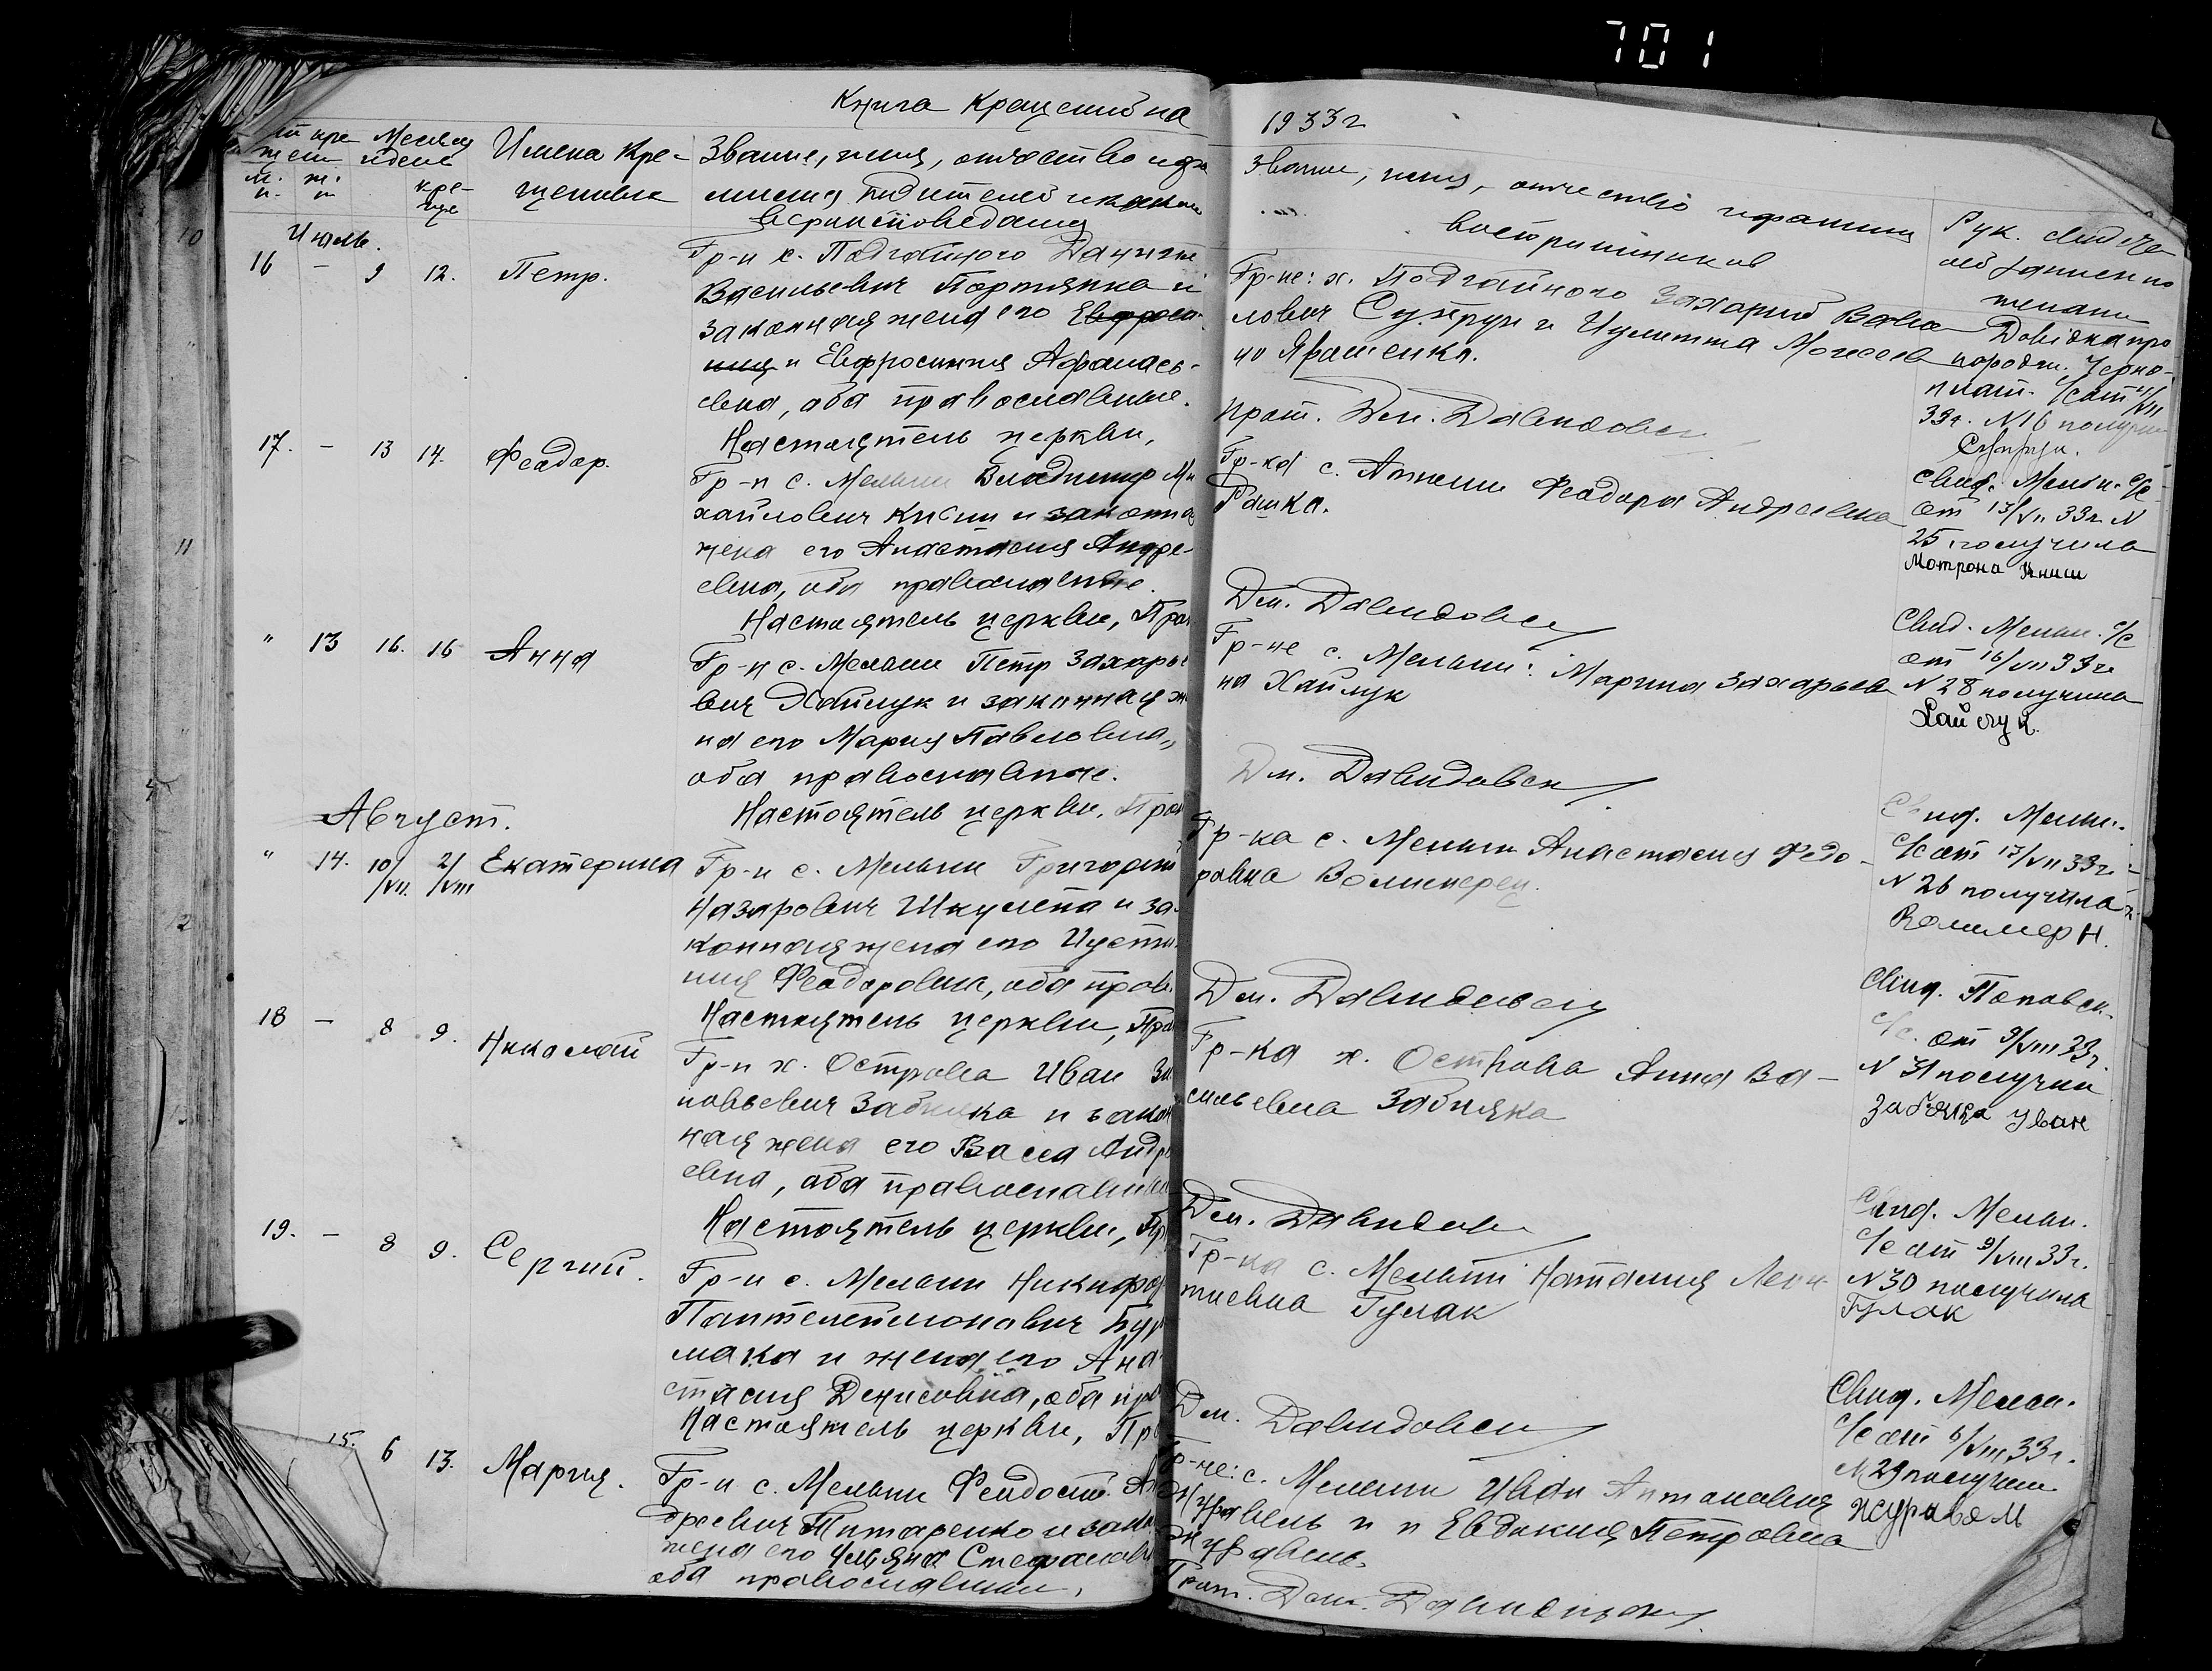 701
Книга Крещений на 1933 г
Имена Кре-
щенных
Звание, имя, отчество и фа
милия родителей и какого
вероисповедания
Звание, имя, отчество и фамилия
восприемников
Июль.
16 – 9 12. Петр.
Гр-н х. Подгайного
Васильевич Портянка и
законная жена его
Евфросиния Афанась-
евна, оба православные.
Настоятель церкви,
Гр-не: х. Подгайного Захарий
лович Супрун и Иулитта Моисеев
но Ярошенко.
Прот. Дм. Давидович
Довідка про
породж. Черно-
плат. с/сот
33 г. N16 получил
Супрун.
17. – 13 14. Феодор.
Гр-н с. Мельни Владимир Ми
хайлович Книш и законна
жена его Анастасия Андре-
евна, оба православные.
Настоятель церкви, Прот
Гр-ка с. Феодора Андреевна
Рашка.
Дм. Давидович
Свид. Мельн. с/с
от 13/VII 33 г. N
25 получила
Мотрона Книш
" 13 16. 16 Анна
Гр-н с. Мельни Петр Захарье
вич Хайлук и законная же
на его Мария Павловна,
оба православные.
Настоятель церкви, Прот
Гр-не с. Мельни: Марина Захарьев
на Хайлук
Дм. Давидович
Свид. Мельн. с/с
от 16/VII 33 г.
N 28 получила
Хайлук
Август.
" 14. 10/VII. 2/VIII Екатерина
Гр-н с. Мельни Григорий
Назарович Шкулепа и за-
конная жена его Иусти
ния Феодоровна, оба прав.
Настоятель церкви, Прот
Гр-ка с. Мельни Анастасия Федо-
ровна
Дм. Давидович
Свид. Мельн.
с/с от 17/VII 33 г.
N 26 получила
18 – 8 9. Николай
Гр-н х. Острова Иван Зи
новьевич Забияка и закон
ная жена его Васса Андр
евна, оба православные
Настоятель церкви, Пр
Гр-ка х. Острова Анна Ва-
сильевна Забияка
Дм. Давидович
Свид. Поповск.
с/с. от 9/VIII 33 г.
N 31 получил
Забияка Иван
19. – 8 9. Сергий.
Гр-н с. Мельни Никифор
Пантелеймонович Бур
мака и жена его Ана
стасия Денисовна, оба пр
Настоятель церкви, Пр
Гр-ка с. Мельни Наталия Леон
тиевна Гулак
Дм. Давидович
Свид. Мельн.
с/с от 9/VIII 33 г.
N 30 получила
Гулак
15. 6 13. Мария.
Гр-н с. Мельни Феодосий Ан
дреевич Титаренко и закон
жена его Ульяна Стефанов
оба православные.
Гр-не: с. Мельни Иван Антонович
Журавель и Евдокия Петровна
Журавель.
Прот. Дм. Давидович
Свид. Мельн.
с/с от 6/VIII 33 г.
N 29 получил
Журавель